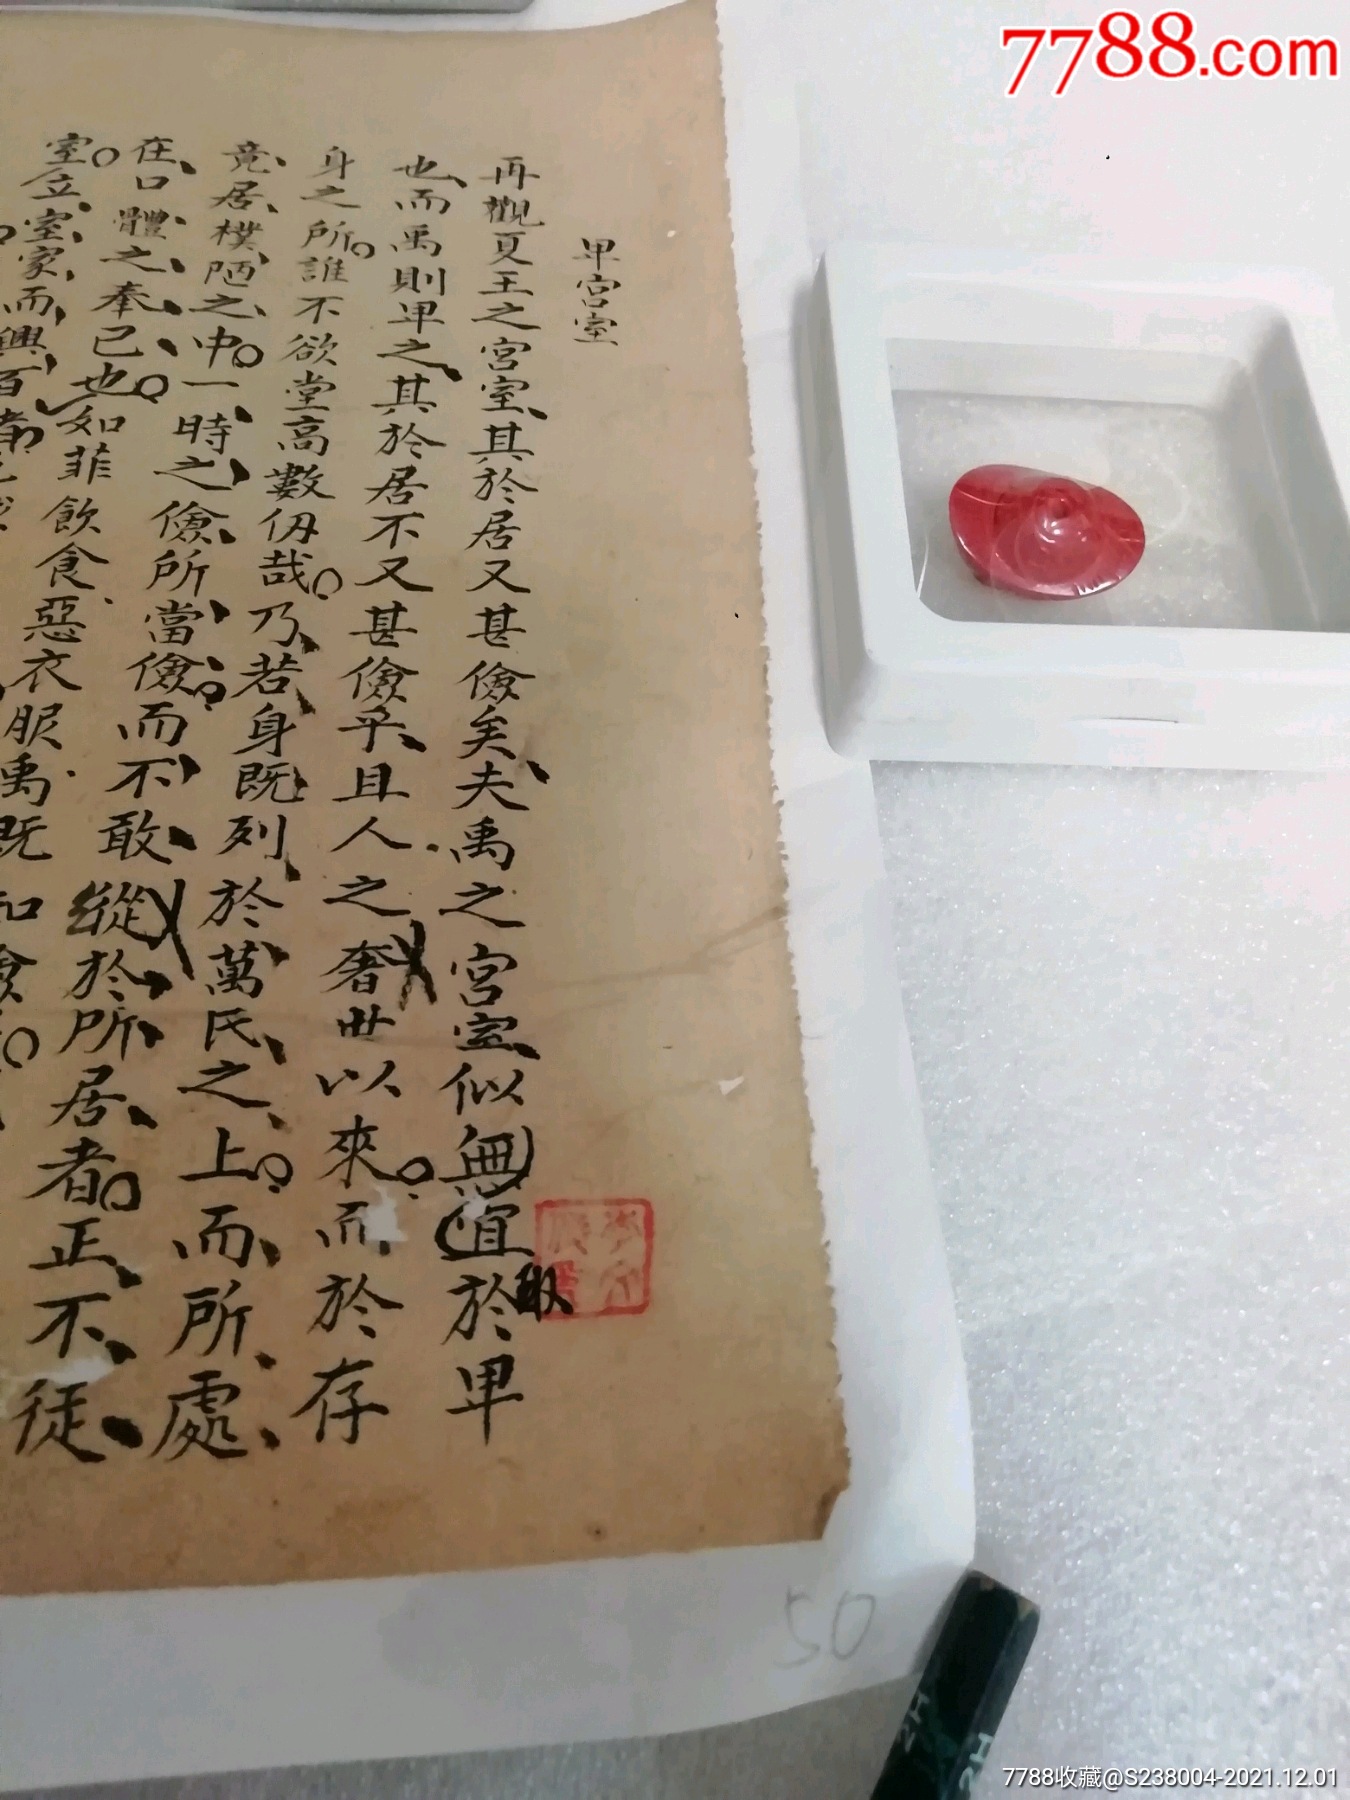 7788.com
卑宮室
再觀夏王之宮室其於居又甚儉矣夫禹之宮室似無宜於卑
取
也而禹則卑之其於居不又甚儉乎且人之奢世以來而於存
身之所誰不欲堂高數仞哉乃若身既列於萬民之上而所處
竟居樸陋之中一時之儉所當儉而不敢縱於所居者正不徒
在口體之奉已也如菲飲食惡衣服禹既
室立室家而興百堵
50
2H
2H
7788收藏@S238004-2021.12.01